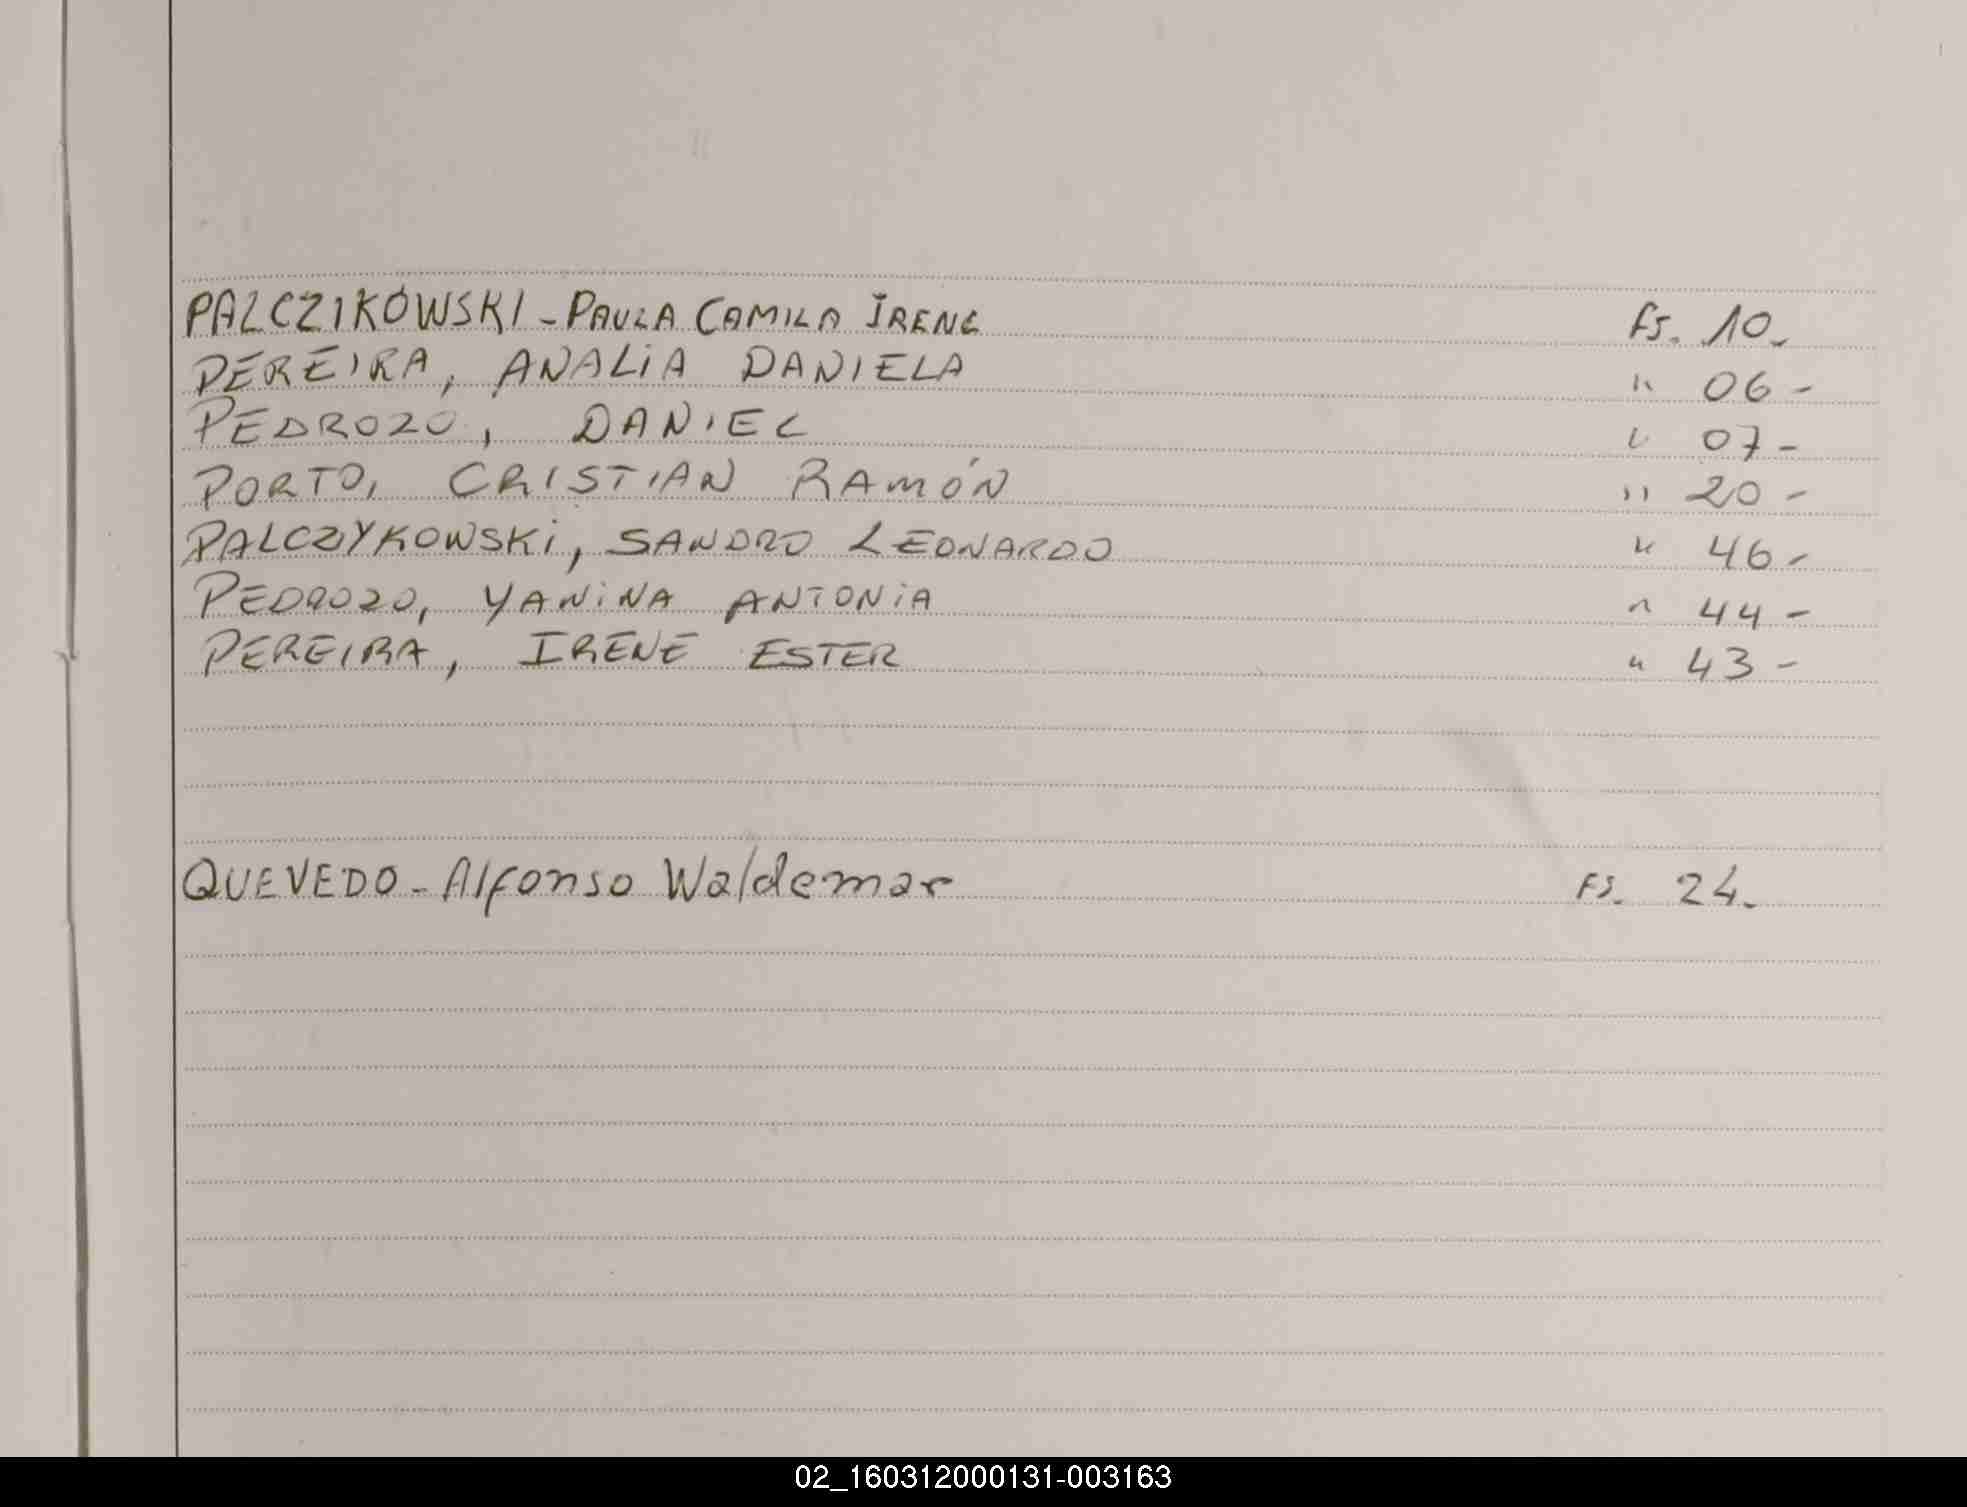 PALCZIKOWSKI - PAULA CAMILA IRENE FS. 10.-
PEREIRA, ANALiA DANIELA " 06 -
PEDROZO, DANIEL " 07 -
PORTO, CRISTIAN RAMÓN " 20 -
PALCZYKOWSKi, SANDRO LEONARDO " 46 -
PEDROZO, YANiNA ANTONiA " 44 -
PEREIRA, IRENE ESTER " 43 -
QUEVEDO - Alfonso Waldemar FS. 24.-
02_160312000131-003163